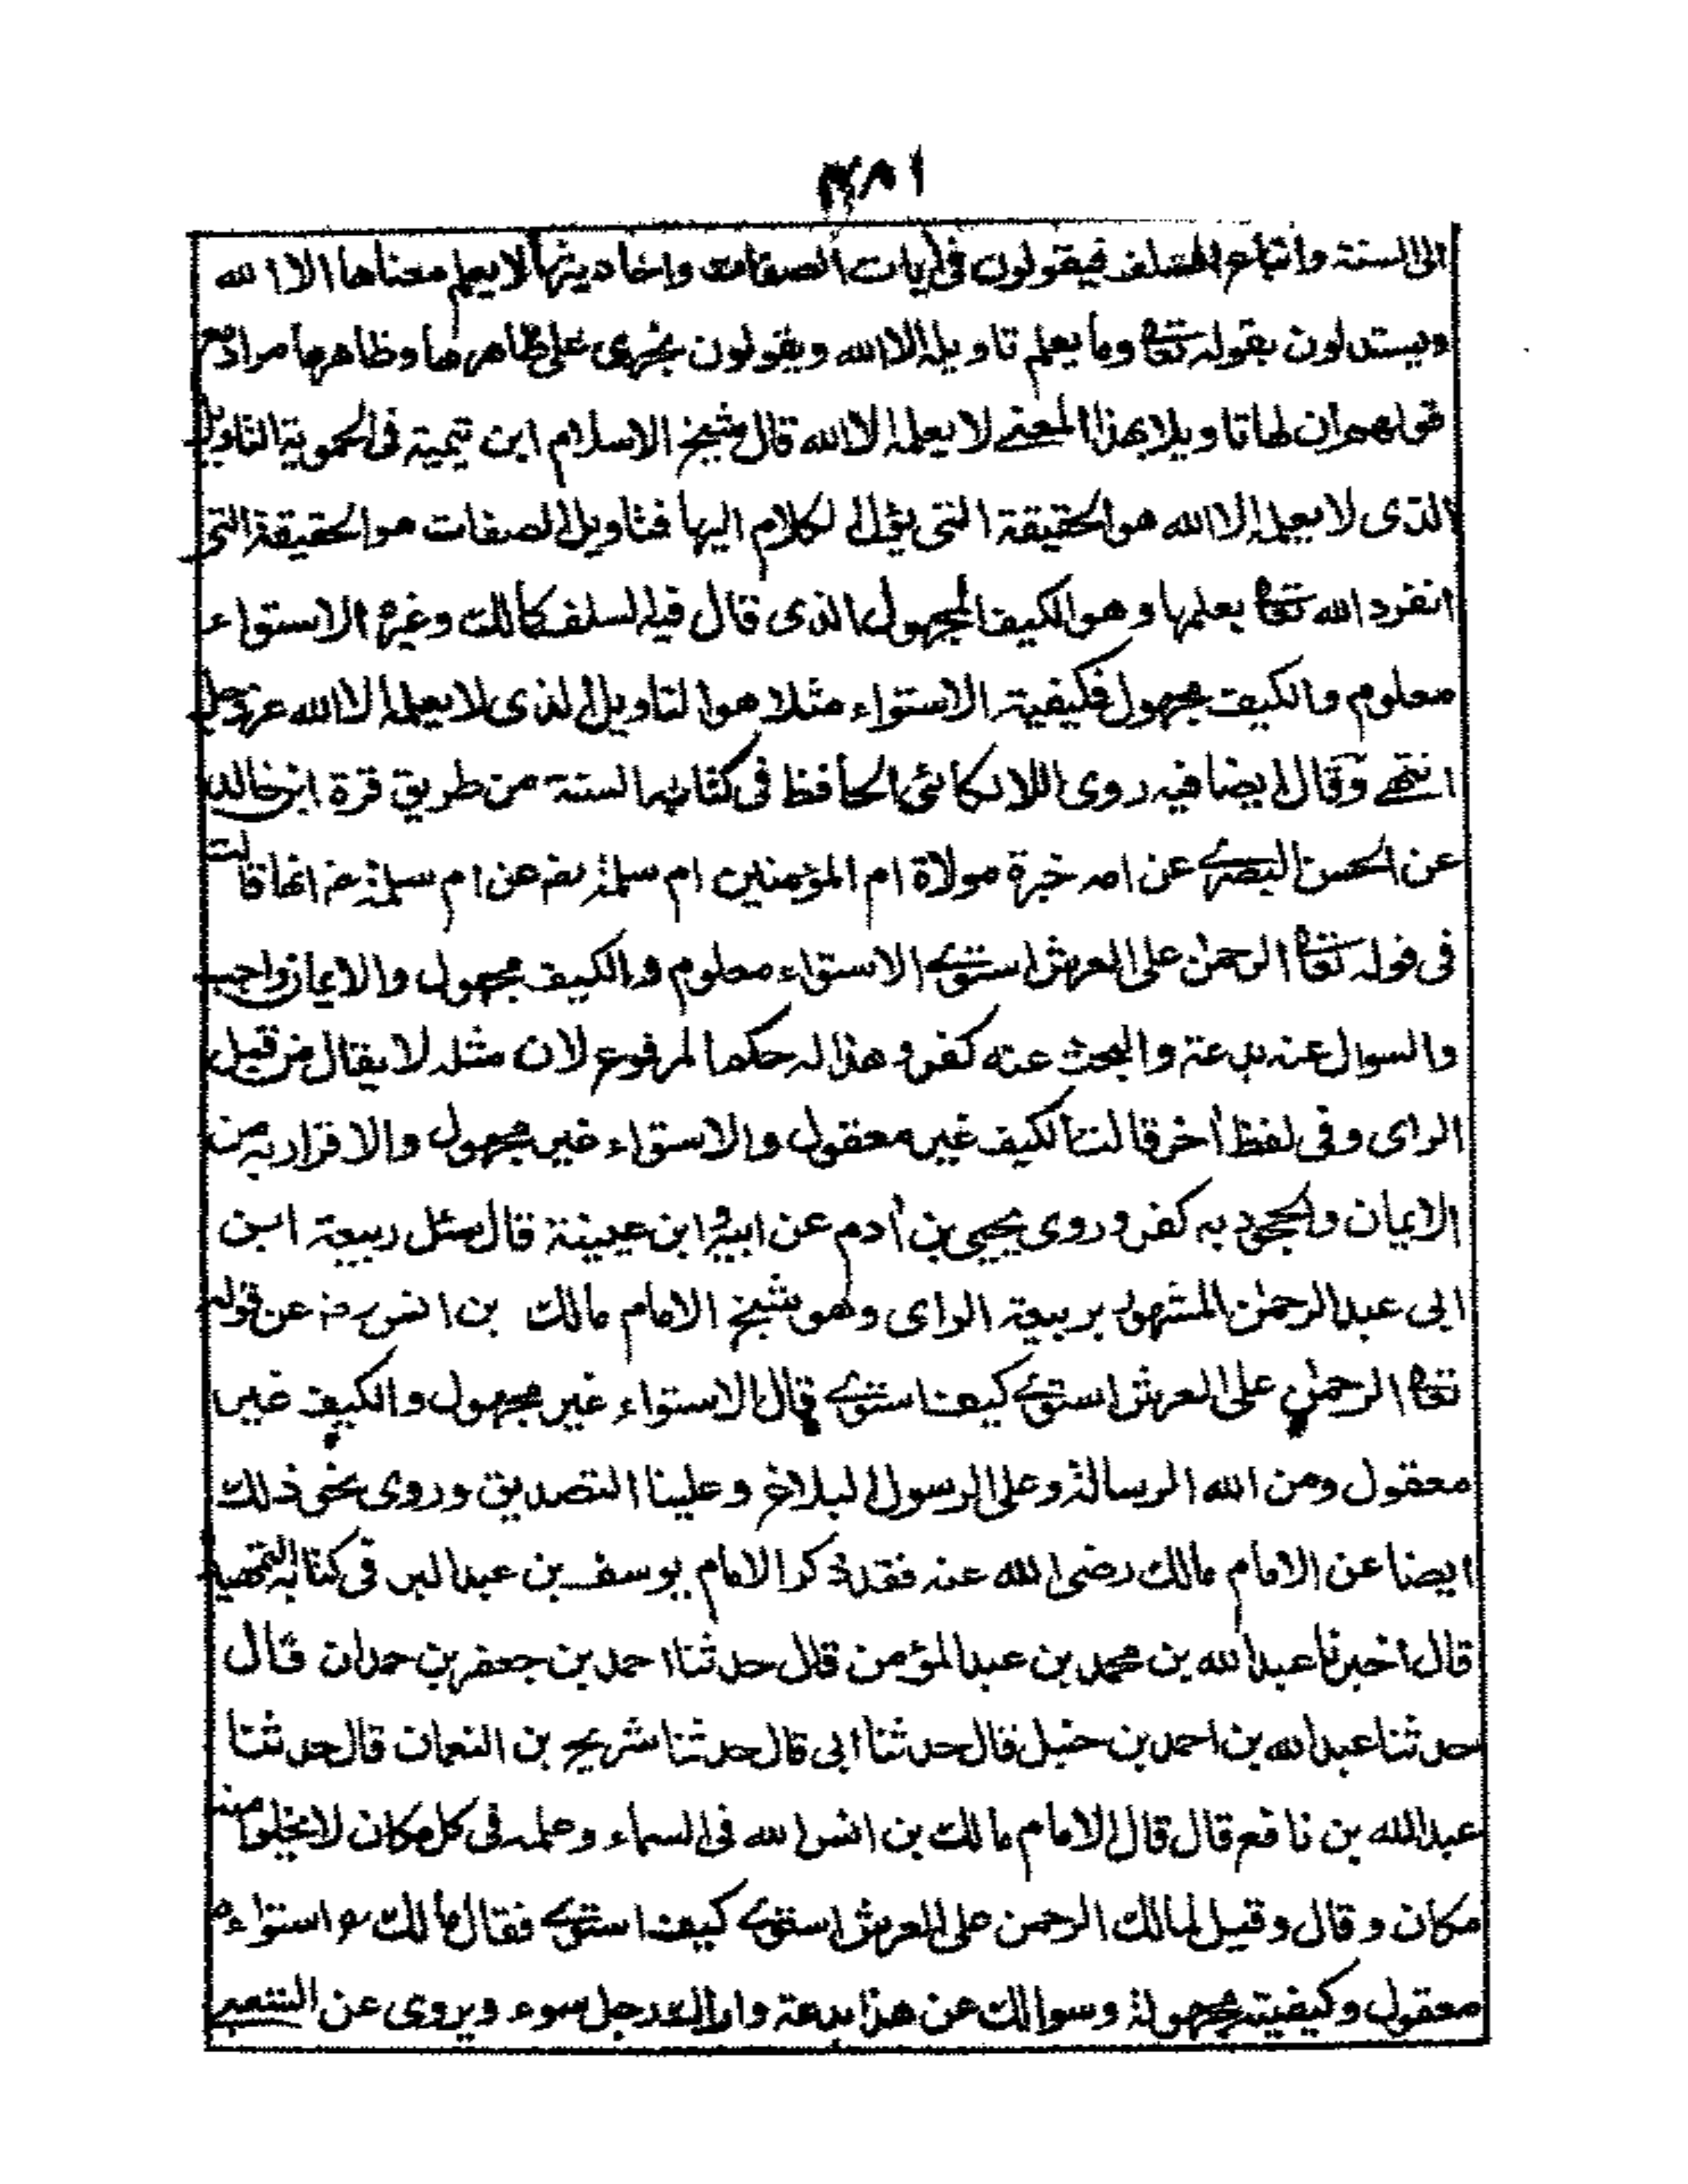 ٤٨١
الى السنة واتباع السلف فيقولون فى أيات الصفات واحاديثها لا يعلم معناها الا الله
ويستدلون بقوله تعالى وما يعلم تاويله الا الله ويقولون تجرى على ظاهرها وظاهرها مراد مع
قولهم ان لها تاويلا بهذا المعنى لا يعلمه الا الله قال شيخ الاسلام ابن تيمية فى الحموية التاويل
الذى لا يعلمه الا الله هو الحقيقة التى يؤل الكلام اليها فتاويل الصفات هو الحقيقة التى
انفرد الله تعالى بعلمها وهو الكيف المجهول الذى قال فيه السلف كمالك وغيره الاستواء
معلوم والكيف مجهول فكيفية الاستواء مثلا هو التاويل الذى لا يعلمه الا الله عز وجل
انتهى وقال ايضا فيه روى اللالكائى الحافظ فى كتابه السنة من طريق قرة ابن خالد
عن الحسن البصرى عن امه خيرة مولاة ام المؤمنين ام سلمة رضـ عن ام سلمة رضـ انها قالت
فى قوله تعالى الرحمن على العرش استوى الاستواء معلوم والكيف مجهول والايمان واجب
والسوال عنه بدعة والبحث عنه كفر وهذا له حكم المرفوع لان مثله لا يقال من قبل
الراى وفى لفظ أخر قالت الكيف غير معقول والاستواء غير مجهول والاقرار به من
الايمان والجحود به كفر وروى يحيى بن أدم عن ابيه وابن عيينة قال سئل ربيعة ابن
ابى عبد الرحمن المشهور بربيعة الراى وهو شيخ الامام مالك بن انس رضـ عن قوله
تعالى الرحمن على العرش استوى كيف استوى قال الاستواء غير مجهول والكيف غير
معقول ومن الله الرسالة وعلى الرسول البلاغ وعلينا التصديق وروى نحو ذلك
ايضا عن الامام مالك رضى الله عنه فقد ذكر الامام يوسف بن عبد البر فى كتابه التمهيد
قال أخبرنا عبد الله بن محمد بن عبد المؤمن قال حدثنا احمد بن جعفر بن حمدان قال
حدثنا عبد الله بن احمد بن حنبل قال حدثنا ابى قال حدثنا شريح بن النعمان قال حدثنا
عبد الله بن نافع قال قال الامام مالك بن انس الله فى السماء وعلمه فى كل مكان لا يخلو منه
مكان وقال وقيل لمالك الرحمن على العرش استوى كيف استوى فقال مالك رح استواءه
معقول وكيفيته مجهولة وسوالك عن هذا بدعة واراك رجل سوء ويروى عن الشعبى